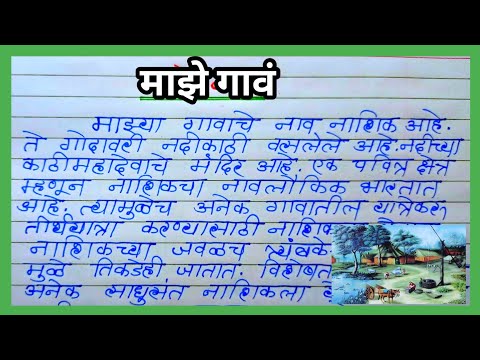 माझे गावं
माझ्या गावाचे नाव नाशिक आहे.
ते गोदावरी नदीकाठी वसलेले आहे.नदीच्या
काठी महादेवाचे मंदिर आहे. एक पवित्र क्षेत्र
म्हणून नाशिकचा नावलौकिक भारतात
आहे. त्यामुळेच अनेक गावातील यात्रेकरू
तीर्थयात्रा करण्यासाठी नाशिक
नाशिकच्या जवळच त्र्यंबके
मुळे तिकडेही जातात. विशेषत
अनेक साधुसंत नाशिकला